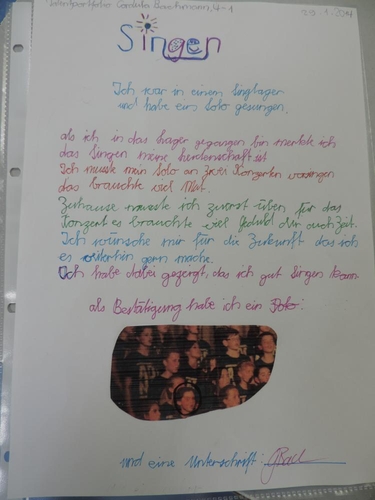 Wertportfolio Cordula Bachmann, U-1
29.1.2014
Singen
Ich war in einem Singlager
und habe ein Solo gesungen.
als ich in das Lager gegangen bin merkte ich
das Singen meine Leidenschaft ist
Ich musste mein Solo an zwei Konzerten vorsingen
das brauchte viel Mut.
Zuhause musste ich zuerst üben für das
Konzert es brauchte viel Geduld und auch Zeit.
Ich wünsche mir für die Zukunft das ich
es weiterhin gern mache.
Ich habe dabei gezeigt, das ich gut Singen kann
als Bestätigung habe ich ein Foto:
und eine Unterschrift: CBach